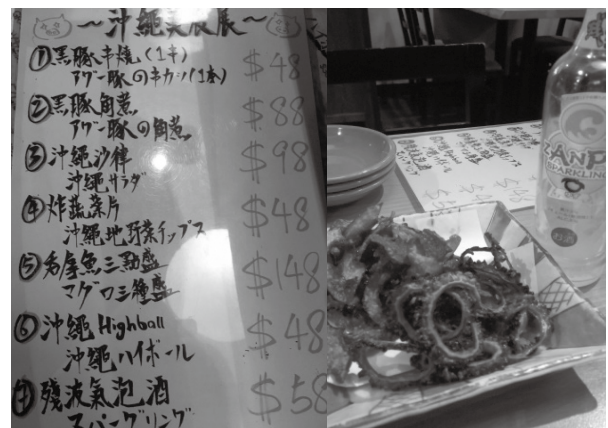 ～沖縄美食展～
①黒豚串燒(1串)
アグー豚の串カツ(1本)
$48
②黒豚角煮
アグー豚の角煮
$88
③沖縄沙律
沖縄サラダ
$98
④炸蔬菜片
沖縄地野菜チップス
$48
⑤吞拿魚三點盛
マグロ三種盛
$148
⑥沖縄Highball
沖縄ハイボール
$48
⑦殘波氣泡酒
スパークリング
$58
ZANPA
SPARKLING